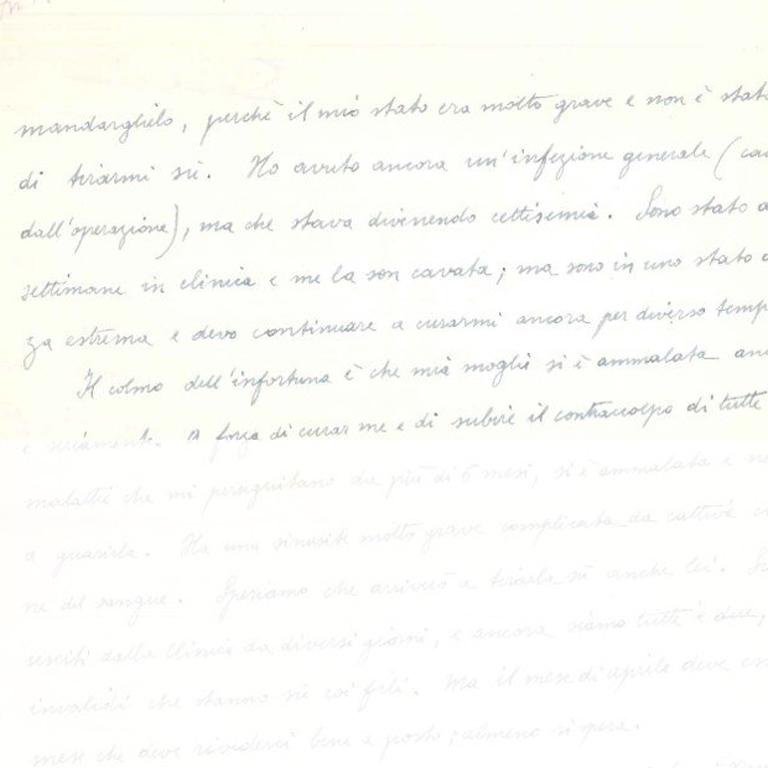 mandarglielo, perchè il mio stato era molto grave e non è stato
di tirarmi sù. Ho avuto ancora un'infezione generale (
dall'operazione), ma che stava divenendo cettisimia. Sono stato
settimane in clinica e me la son cavata; ma sono in uno stato
za estrema e devo continuare a curarmi ancora per diverso temp
Il colmo dell'infortuna è che mia moglie si è ammalata an
e seriamente. A forza di curar me e di subire il contraccolpo di tutte
malattie che mi perseguitano da più di 6 mesi, si è ammalata e
a guarirla. Ha una sinusite molto grave complicata da cattiva
ne del sangue. Speriamo che arriverò a tirarla sù anche lei.
usciti dalla Clinica da diversi giorni, e ancora siamo tutti e due,
invalidi che stanno sù coi fili. Ma il mese di aprile deve
mese che deve rivederci bene a posto; almeno si spera.